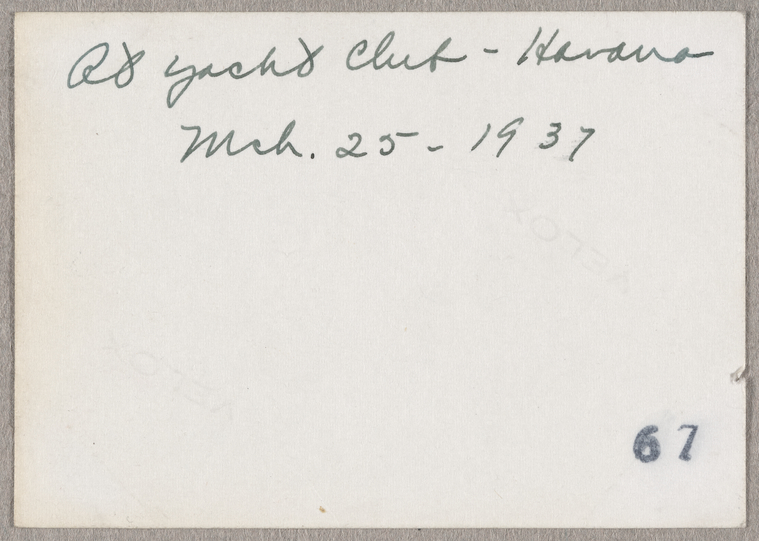 At Yacht Club - Havana
Mch. 25 - 1937
VELOX
VELOX
67